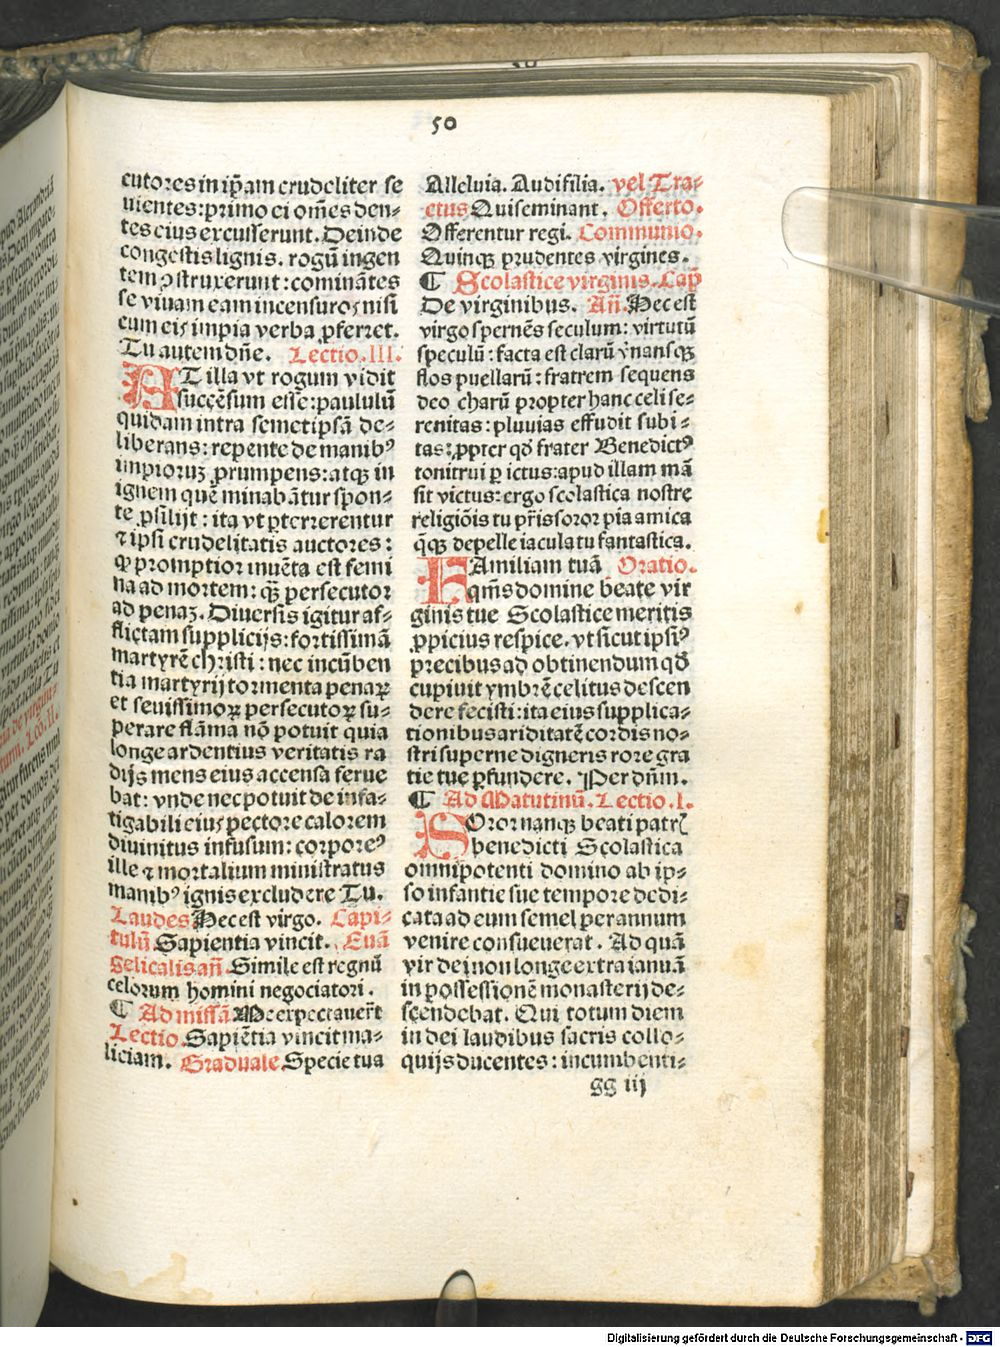 50
cutores in ip̄am crudeliter se
uientes: primo ei om̄es den⸗
tes eius excusserunt. Deinde
congestis lignis. rogū ingen
tem ꝯstruxerunt: comināntes
se viuam eam incensuros nisi
cum eis impia verba ꝓferret.
Tu autem dn̄e. Lectio .III.
AT illa vt rogum vidit
succēsum esse: paululū
quidam intra semetipsā de⸗
liberans: repente de manibꝰ
impioruꝫ ꝓrumpens: atqꝫ in
ignem quē minabātur spon⸗
te ꝓsilijt: ita vt ꝑterrerentur
⁊ ipsi crudelitatis auctores:
ꝙ promptior inuēta est femi
na ad mortem: qꝫ̄ persecutor
ad penaꝫ. Diuersis igitur af⸗
flictam supplicijs: fortissimā
martyrē christi: nec incūben
tia martyrij tormenta penaꝝ
et seuissimoꝝ persecutoꝝ su⸗
perare flāma nō potuit quia
longe ardentius veritatis ra
dijs mens eius accensa ferue
bat: vnde nec potuit de infa⸗
tigabili eius pectore calorem
diuinitus infusum: corporeꝰ
ille ⁊ mortalium ministratus
manibꝰ ignis excludere Tu.
Laudes Hec est virgo. Capi⸗
tulū Sapientia vincit. Euā
gelicalis añ. Simile est regnū
celorum homini negociatori.
¶ Ad missā Me expectauer̄t
Lectio. Sapiētia vincit ma⸗
liciam. Graduale Specie tua
Alleluia. Audi filia. vel Tra⸗
ctus Qui seminant. Offerto.
Offerentur regi. Communio.
Quinqꝫ prudentes virgines.
¶ Scolastice virginis. Cap̄
De virginibus. Añ. Hec est
virgo spernēs seculum: virtutū
speculū: facta est clarū
flos puellarū: fratrem sequens
deo charū propter hanc celi se⸗
renitas: pluuias effudit subi⸗
tas: ꝓpter qd̄ frater Benedictꝰ
tonitrui ꝑ ictus: apud illam mā
sit victus: ergo scolastica nostre
religiōis tu p̄ris soror pia amica
q̄qꝫ depelle iacula tu fantastica.
FAmiliam tuā Oratio.
qm̄s domine beate vir
ginis tue Scolastice meritis
ꝓpicius respice. vt sicut ipsiꝰ
precibus ad obtinendum qd̄
cupiuit ymbrē celitus descen
dere fecisti: ita eius supplica⸗
tionibus ariditatē cordis no⸗
stri superne digneris rore gra
tie tue ꝑfundere. Per dn̄m.
¶ Ad Matutinū. Lectio .I.
SOror nanqꝫ beati patrꝭ
benedicti Scolastica
omnipotenti domino ab ip⸗
so infantie sue tempore dedi⸗
cata ad eum semel per annum
venire consueuerat. Ad quā
vir dei non longe extra ianuā
in possessionē monasterij de⸗
scendebat. Qui totum diem
in dei laudibus sacris collo⸗
quijs ducentes: incumbenti⸗
gg iij
Digitalisierung gefördert durch die Deutsche Forschungsgemeinschaft - DFG